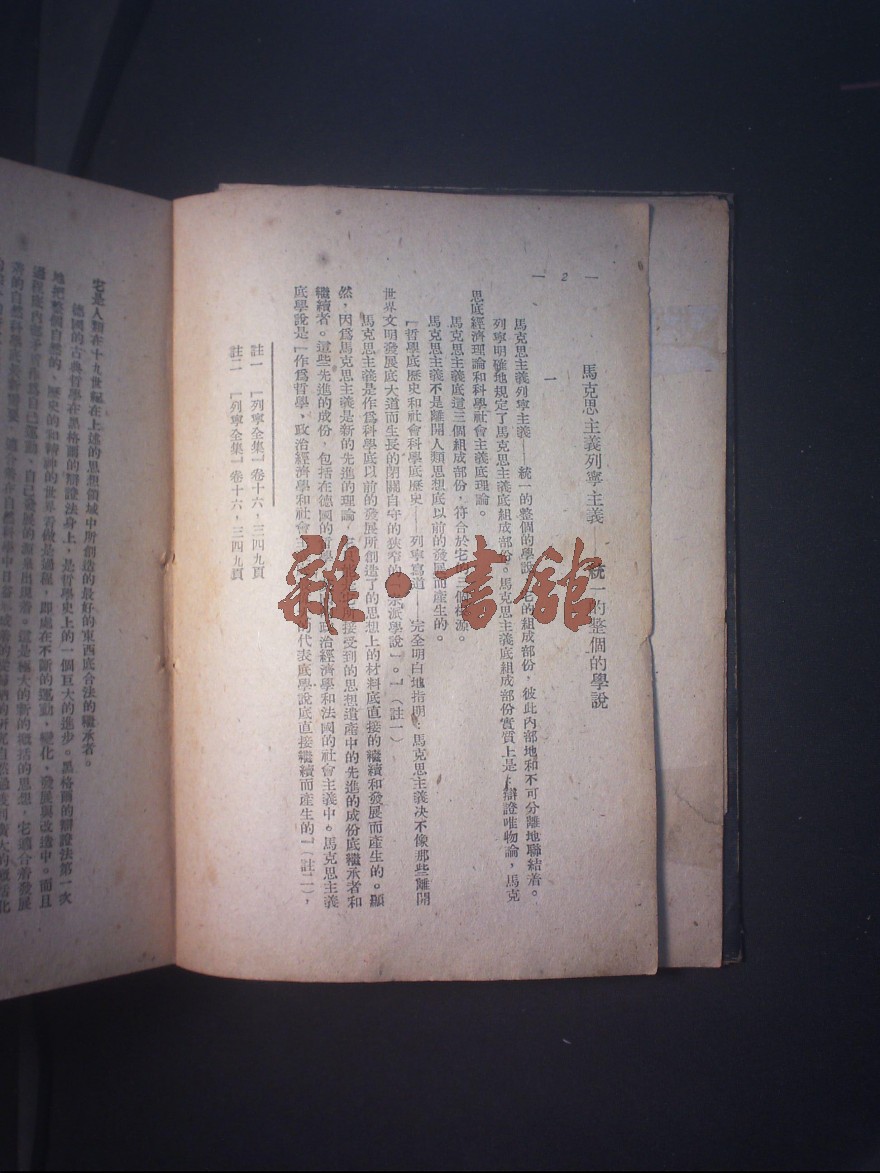 — 2 —
馬克思主義列寧主義——統一的整個的學說
一
馬克思主義列寧主義——統一的整個的學說,它的組成部份,彼此內部地和不可分離地聯結着。
列寧明確地規定了馬克思主義底組成部份。馬克思主義底組成部份實質上是:辯證唯物論,馬克
思底經濟理論和科學社會主義底理論。
馬克思主義底這三個組成部份,符合於宅的三個根源。
馬克思主義不是離開人類思想底以前的發展而產生的。
『哲學底歷史和社會科學底歷史——列寧寫道——完全明白地指明:馬克思主義決不像那些離開
世界文明發展底大道而生長的閉關自守的狹窄的「宗派學說」。』(註一)
馬克思主義是作爲科學底以前的發展所創造了的思想上的材料底直接的繼續和發展而產生的。顯
然,因爲馬克思主義是新的先進的理論,接受到的思想遺產中的先進的成份底繼承者和
繼續者。這些先進的成份,包括在德國的哲學政治經濟學和法國的社會主義中。馬克思主義
底學說是『作爲哲學,政治經濟學和社會代表底學說底直接繼續而產生的』(註二),
註一 『列寧全集』卷十六,三四九頁
註二 『列寧全集』卷十六,三四九頁
雜·書館
宅是人類在十九世紀在上述的思想領域中所創造的最好的東西底合法的繼承者。
德國的古典哲學在黑格爾的辯證法身上,是哲學史上的一個巨大的進步。黑格爾的辯證法第一次
地把整個自然的、歷史的和精神的世界看做是過程,即處在不斷的運動、變化、發展與改造中。而且
過程底內部自己運動、自己發展的源泉出現着。這是極大的新的概括的思想,宅適合着發展